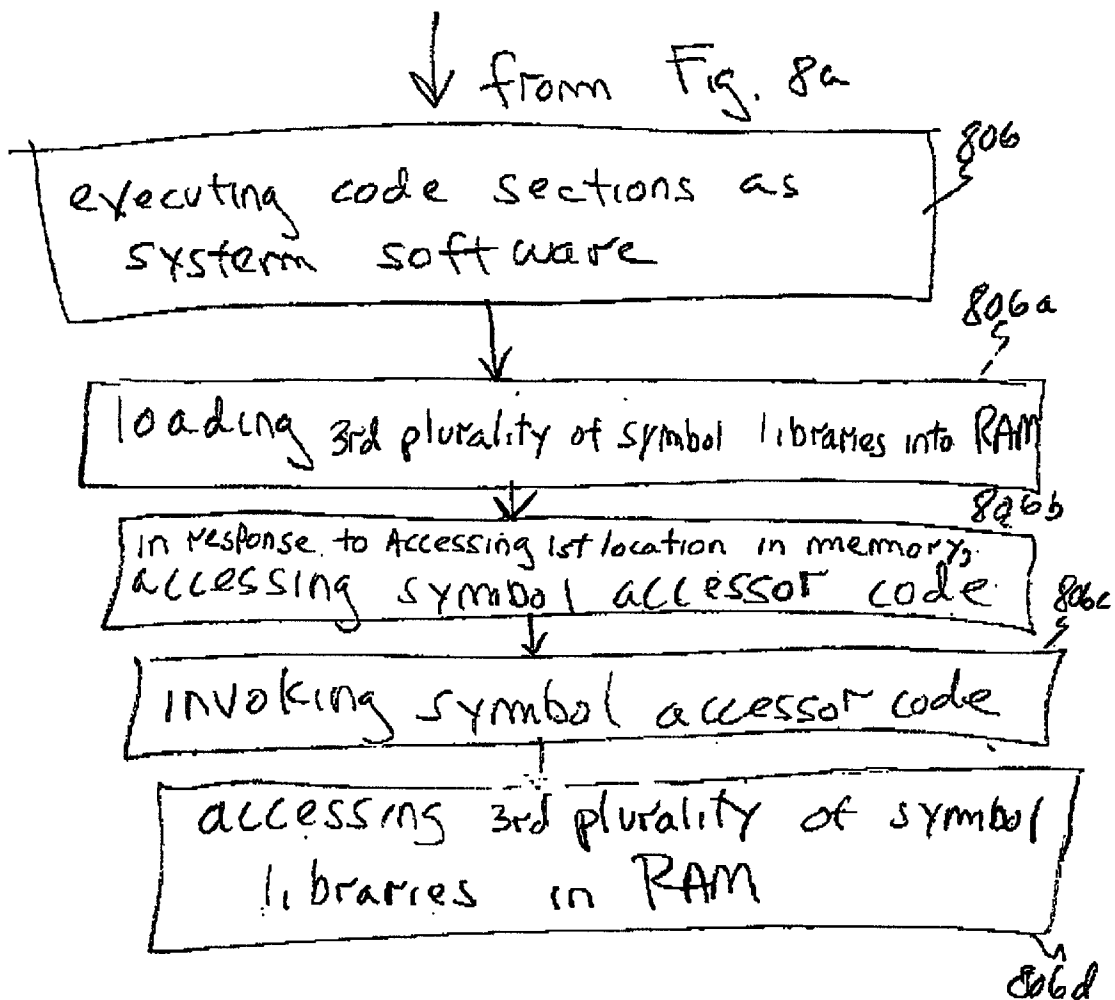 from Fig. 8a
806
executing code sections as
system software
806a
loading 3rd plurality of symbol libraries into RAM
806b
in response to Accessing 1st location in memory,
accessing symbol accessor code
806c
invoking symbol accessor code
accessing 3rd plurality of symbol
libraries in RAM
806d